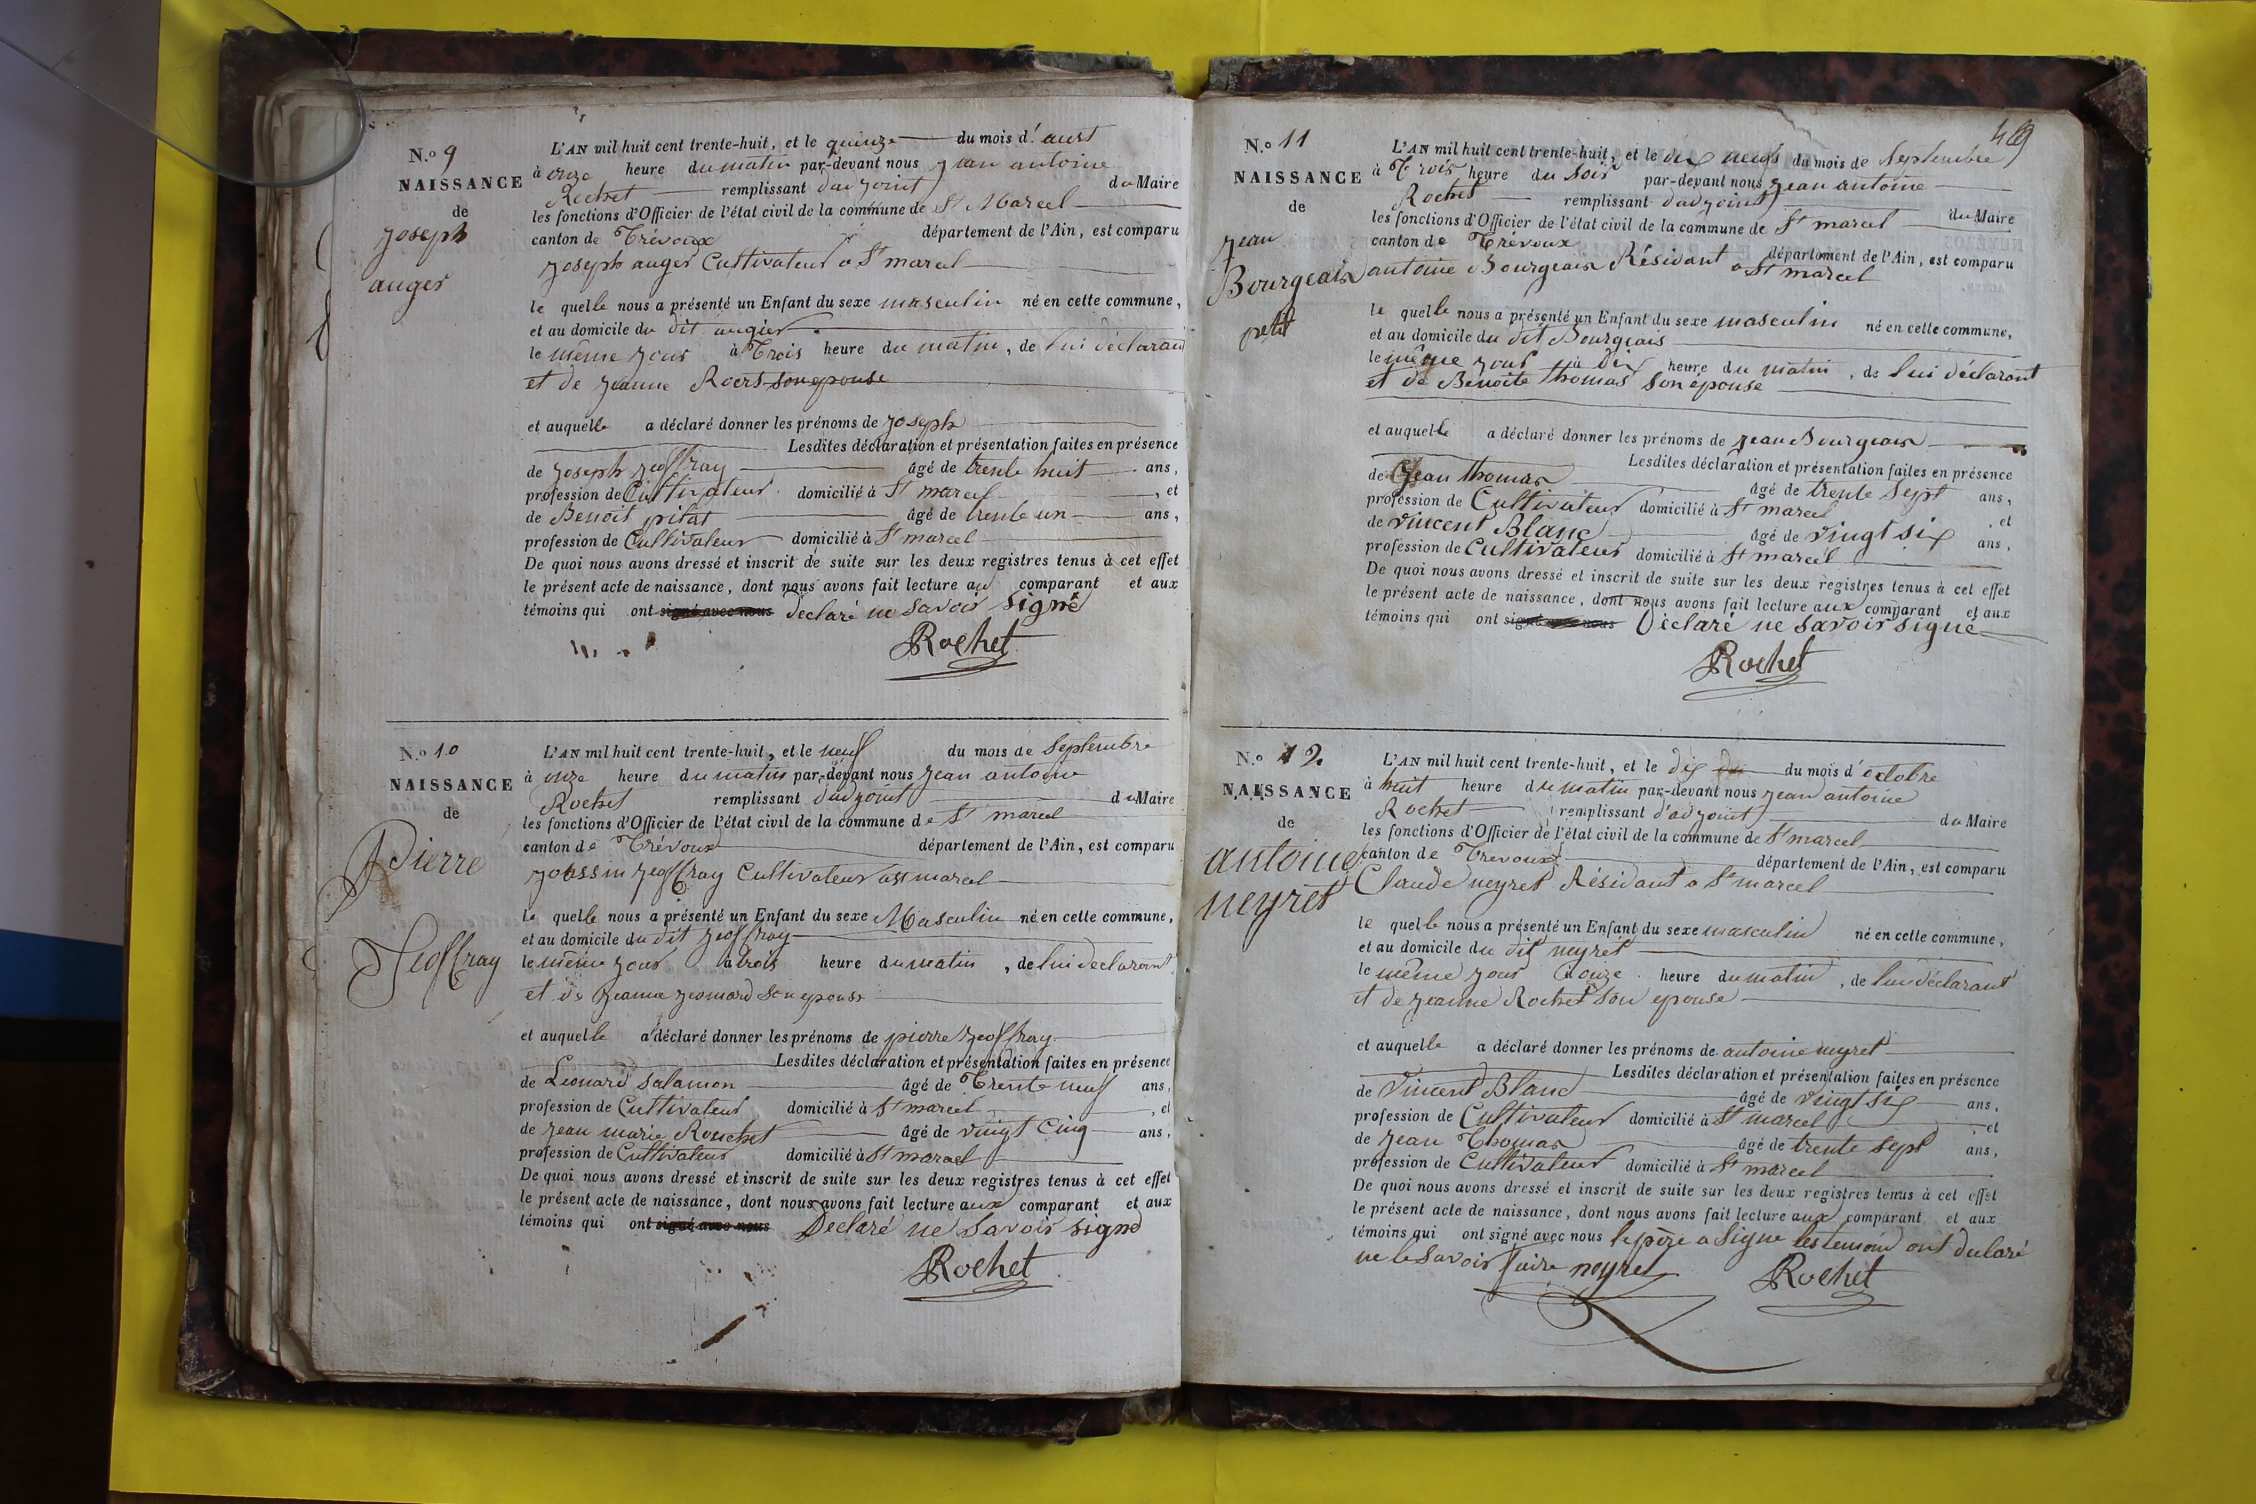 N.o 9
NAISSANCE
de
joseph
auger
L'AN mil huit cent trente-huit, et le quinze du mois d'aust
à onze heure du matin par-devant nous jean antoine
Rochet remplissant d'adjoint du Maire
les fonctions d'Officier de l'état civil de la commune de St Marcel
canton de Trévoux département de l'Ain, est comparu
joseph auger Cultivateur a St marcel
le quelle nous a présenté un Enfant du sexe masculin né en cette commune,
et au domicile du dit augier
le même jour à Trois heure du matin, de lui déclarant
et de jeanne Roers son epouse
et auquelle a déclaré donner les prénoms de joseph
Lesdites déclaration et présentation faites en présence
de joseph jeoffray âgé de trente huit ans,
profession de Cultivateur domicilié à St marcel, et
de Benoit pitat âgé de trente un ans,
profession de Cultivateur domicilié à St marcel
De quoi nous avons dressé et inscrit de suite sur les deux registres tenus à cet effet
le présent acte de naissance, dont nous avons fait lecture au comparant et aux
témoins qui ont signé avec nous declaré ne savoir signé
Rochet
N.o 10
NAISSANCE
de
Pierre
Jeoffray
L'AN mil huit cent trente-huit, et le neuf du mois de Septembre
à onze heure du matin par-devant nous jean antoine
Rochet remplissant d'adjoint du Maire
les fonctions d'Officier de l'état civil de la commune de St marcel
canton de Trévoux département de l'Ain, est comparu
jeoffray Cultivateur a St marcel
le quelle nous a présenté un Enfant du sexe Masculin né en cette commune,
et au domicile du dit jeoffray
le même jour à trois heure du matin, de lui declarant
et de jeanne jeomard son epouse
et auquelle a déclaré donner les prénoms de pierre jeoffray
Lesdites déclaration et présentation faites en présence
de Leonard Salamon âgé de Trente neuf ans,
profession de Cultivateur domicilié à St marcel, et
de jean marie Rouchet âgé de vingt Cinq ans,
profession de Cultivateur domicilié à St marcel
De quoi nous avons dressé et inscrit de suite sur les deux registres tenus à cet effet
le présent acte de naissance, dont nous avons fait lecture aux comparant et aux
témoins qui ont signé avec nous Declaré ne Savoir signé
Rochet
469
N.o 11
NAISSANCE
de
jean
Bourgeais
petit
L'AN mil huit cent trente-huit, et le dix neufs du mois de Septembre
à Trois heure du soir par-devant nous jean antoine
Rochet remplissant d'adjoint du Maire
les fonctions d'Officier de l'état civil de la commune de St marcel
canton de Trévoux département de l'Ain, est comparu
antoine Bourgeais Résidant a St marcel
le quelle nous a présenté un Enfant du sexe masculin né en cette commune,
et au domicile du dit Bourgeais
le même jour à Dix heure du matin, de lui déclarant
et de Benoite thomas son épouse
et auquelle a déclaré donner les prénoms de jean Bourgeais
Lesdites déclaration et présentation faites en présence
de jean thomas âgé de trente sept ans,
profession de Cultivateur domicilié à St marcel, et
de vincent Blanc âgé de vingt six ans,
profession de Cultivateur domicilié à St marcel
De quoi nous avons dressé et inscrit de suite sur les deux registres tenus à cet effet
le présent acte de naissance, dont nous avons fait lecture aux comparant et aux
témoins qui ont signé avec nous Déclaré ne savoir signé
Rochet
N.o 12
NAISSANCE
de
antoine
neyret
L'AN mil huit cent trente-huit, et le dix du mois d'octobre
à huit heure du matin par-devant nous jean antoine
Rochet remplissant d'adjoint du Maire
les fonctions d'Officier de l'état civil de la commune de St marcel
canton de Trevoux département de l'Ain, est comparu
Claude neyret Résidant a St marcel
le quelle nous a présenté un Enfant du sexe masculin né en cette commune,
et au domicile du dit neyret
le même jour à onze heure du matin, de lui déclarant
et de jeanne Rochet son epouse
et auquelle a déclaré donner les prénoms de antoine neyret
Lesdites déclaration et présentation faites en présence
de Vincent Blanc âgé de vingt six ans,
profession de Cultivateur domicilié à St marcel, et
de jean Thomas âgé de trente sept ans,
profession de Cultivateur domicilié à St marcel
De quoi nous avons dressé et inscrit de suite sur les deux registres tenus à cet effet
le présent acte de naissance, dont nous avons fait lecture aux comparant et aux
témoins qui ont signé avec nous le père a signe les temoin ont declaré
ne le savoir faire neyret Rochet